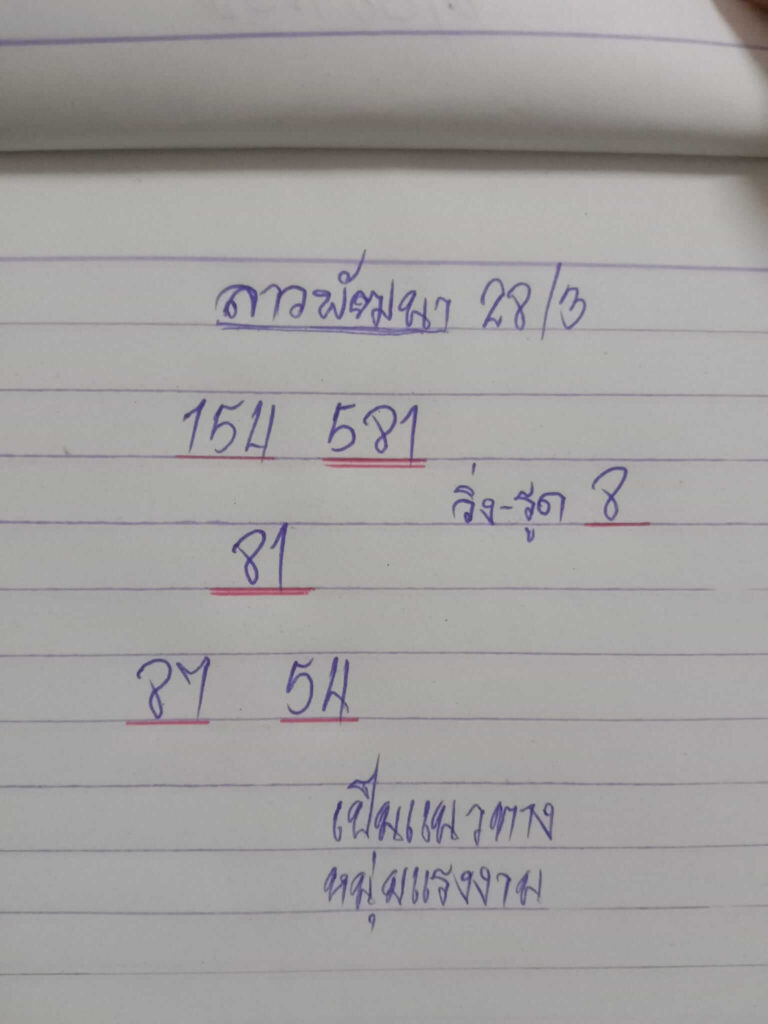 ลาวพัฒนา 28/3
154 581
วิ่ง-รูด 8
81
87 54
เป็นแนวทาง
หนุ่มแรงงาม